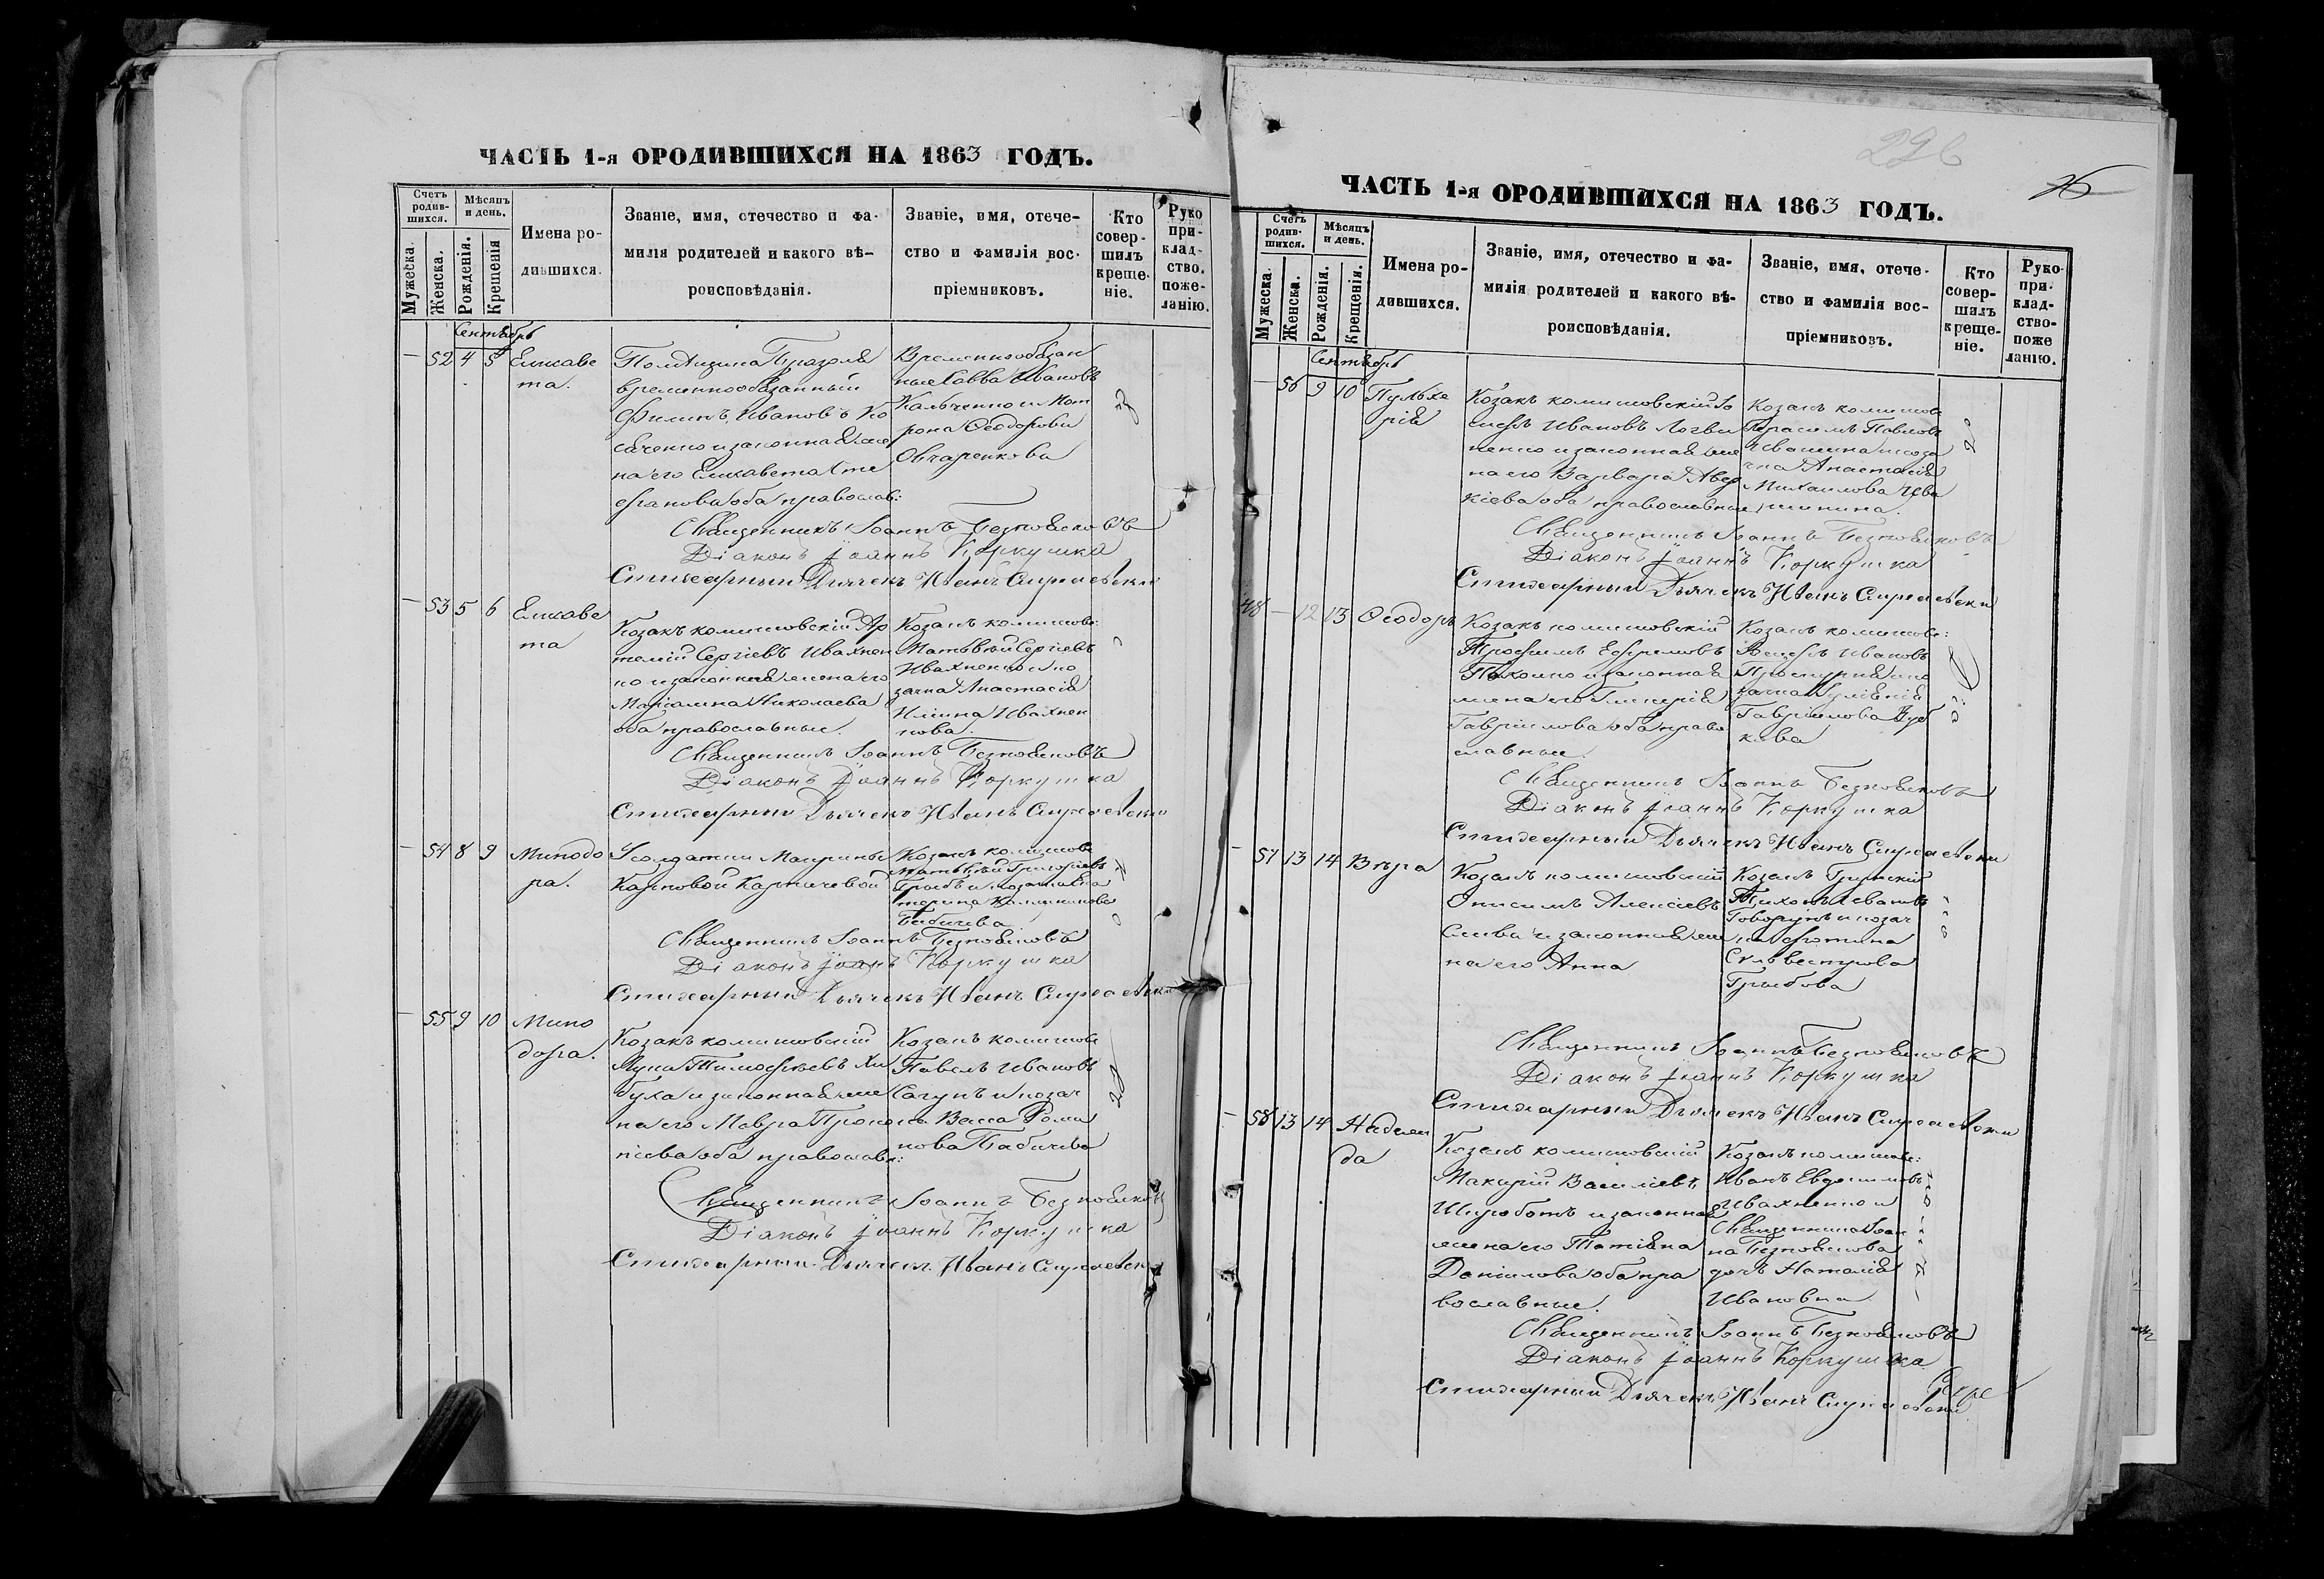 ЧАСТЬ 1-я ОРОДИВШИХСЯ НА 1863 ГОДЪ.
Счетъ родив- шихся.
Мѣсяцъ и день.
Мужеска.
Женска.
Рожденія.
Крещенія
Имена ро-
дившихся.
Званіе, имя, отечество и фа-
милія родителей и какого вѣ-
роисповѣданія.
Званіе, имя, отече-
ство и фамилія вос-
пріемниковъ.
Кто совер- шилъ креще- ніе.
Руко при- клад- ство. поже- ланію.
Сентябрь
— 52 4 5 Елисаве
та.
временнообязанный
Филипъ Ивановъ Ко
сяченко и законная же
на его Елисавета Сте
фанова оба православ:
Временнообязан
ные Савва Ивановъ
Кальченко и Мат
рона Ѳеодорова
Овчаренкова
Священникъ Іоаннъ Безпоясковъ
Діаконъ Іоаннъ Коркушка
Стихарный Дьячекъ Иванъ
— 53 5 6 Елисаве
та
Козакъ комишовскій Ар
темій Сергіевъ Ивахнен
ко и законная жена его
Маріамна Николаева
оба православные.
Козакъ комишов:
Матвѣй Сергіевъ
Ивахненко и ко
зачка Анастасія
Илiина Ивахнен
кова.
Священникъ Іоаннъ Безпоясковъ
Діаконъ Іоаннъ Коркушка
Стихарный Дьячекъ Иванъ
— 54 8 9 Минодо
ра.
У солдатки Марины
Карповой Карпичевой
Козакъ комишов
Матвѣй Григоріевъ
Грибъ и козачка Ека
терина
Бабичева
Священникъ Іоаннъ Безпоясковъ
Діаконъ Іоаннъ Коркушка
Стихарный Дьячекъ Иванъ
— 55 9 10 Мино
дора.
Козакъ комишовскій
Лука Тимоѳеевъ Хи
буха и законная же
на его Мавра Проко
піева оба православн:
Козакъ комишов
Павелъ Ивановъ
Сагунъ и козач
ка Васса Рома
нова Бабичева
Священникъ Іоаннъ Безпоясковъ
Діаконъ Іоаннъ Коркушка
Стихарный Дьячекъ Иванъ
296
ЧАСТЬ 1-я ОРОДИВШИХСЯ НА 1863 ГОДЪ.
Счетъ родив- шихся.
Мѣсяцъ и день.
Мужеска.
Женска.
Рожденія.
Крещенія.
Имена ро-
дившихся.
Званіе, имя, отечество и фа-
милія родителей и какого вѣ-
роисповѣданія.
Званіе, имя, отече-
ство и фамилія вос-
пріемниковъ.
Кто совер- шилъ креще- ніе.
Руко- при- клад- ство- поже ланію.
Сентябрь
— 56 9 10 Пульхе
рія
Козакъ комишовскій Іо
сифъ Ивановъ Логви
ненко и законная же
на его Варвара Авер
кіева оба православные
Козакъ комишов
Герасимъ Павловъ
Чевашина и коза
чка Анастасія
Михаилова Чева
шина.
Священникъ Іоаннъ Безпоясковъ
Діаконъ Іоаннъ Коркушка
Стихарный Дьячекъ Иванъ
48 — 12 13 Ѳеодоръ
Козакъ комишовскій
Трофимъ Ефремовъ
Пахомко и законная
жена его Гликерія
Гавріилова оба право
славные.
Козакъ комишов:
Іосифъ Ивановъ
зачка
Гавріилова
кова
Священникъ Іоаннъ Безпоясковъ
Діаконъ Іоаннъ Коркушка
Стихарный Дьячекъ Иванъ
— 57 13 14 Вѣра
Козакъ комишовскій
Онисимъ Алексіевъ
Слива и законная же
на его Анна
Козакъ Грунскій
Тихонъ Ивановъ
Говорунъ и козач
ка Фотина
Сильвестрова
Грибова
Священникъ Іоаннъ Безпоясковъ
Діаконъ Іоаннъ Коркушка
Стихарный Дьячекъ Иванъ
— 58 13 14 Надеж
да
Козакъ комишовскій
Макарій Василіевъ
законная
жена его Татіана
Даніилова оба пра
вославные.
Козакъ комишов:
Иванъ Евдокимовъ
Ивахненко и
Священника Іоан
на Безпояскова
дочь Наталія
Ивановна
Священникъ Іоаннъ Безпоясковъ
Діаконъ Іоаннъ Коркушка
Стихарный Дьячекъ Иванъ